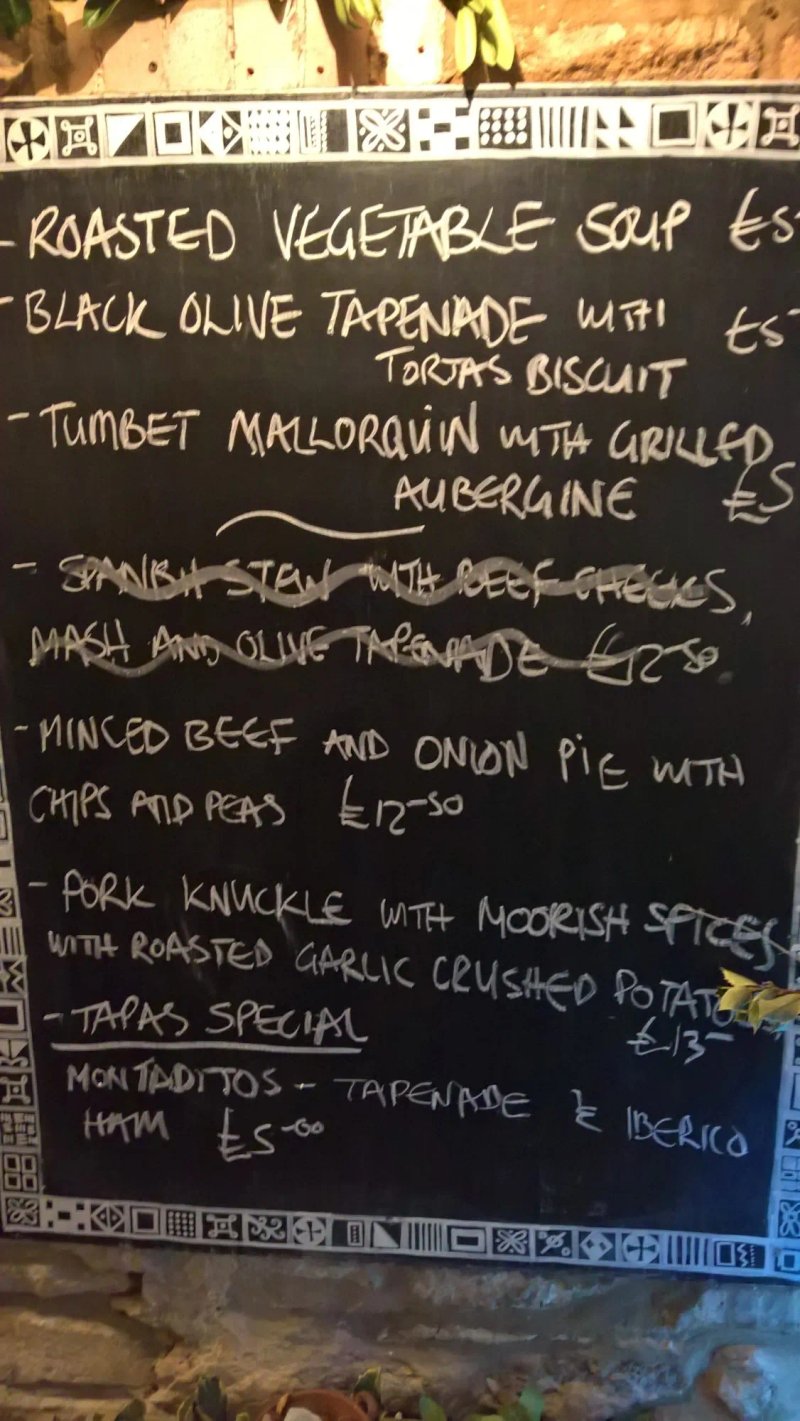 - ROASTED VEGETABLE SOUP £5-
- BLACK OLIVE TAPENADE WITH £5-
TORTAS BISCUIT
- TUMBET MALLORQUIN WITH GRILLED
AUBERGINE £5
- SPANISH STEW WITH BEEF CHEEKS,
MASH AND OLIVE TAPENADE £12-50.
- MINCED BEEF AND ONION PIE WITH
CHIPS AND PEAS £12-50
- PORK KNUCKLE WITH MOORISH SPICES
WITH ROASTED GARLIC CRUSHED POTATOES
£13-
- TAPAS SPECIAL
MONTADITOS - TAPENADE & IBERICO
HAM £5-00